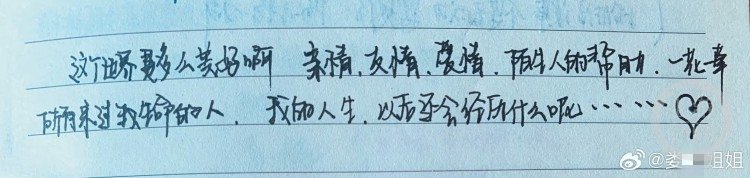 这个世界是多么美好啊 亲情、友情、爱情、陌生人的帮助、一花一草
所有来过我生命的人、我的人生、以后还会经历什么呢……
@娄 姐姐